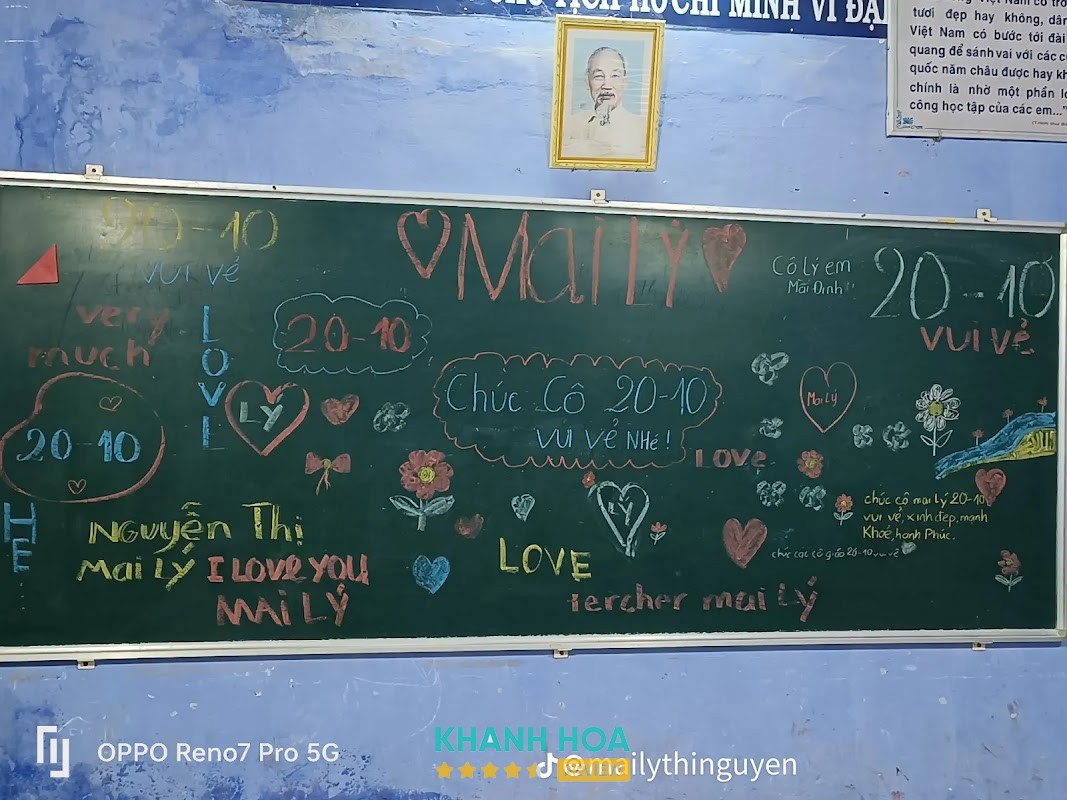 CHỦ TỊCH HỒ CHÍ MINH VĨ ĐẠI
tươi đẹp hay không, dân
Việt Nam có bước tới đài
quang để sánh vai với các
quốc năm châu được hay
chính là nhờ một phần
công học tập của các em..."
20-10
vui vẻ
Mai Lý
Cô Lý em
Mãi Đỉnh
20-10
vui vẻ
very
much
LOVE
20-10
20 10
LÝ
Chúc Cô 20-10
VUI VẺ NHé!
Mai Lý
LOVE
LÝ
HE
NGUYỄN THị
Mai Lý
I Love you
MAi LÝ
LOVE
tercher mai Lý
chúc cô mai lý 20-10
vui vẻ, xinh đẹp, mạnh
Khoẻ, hạnh Phúc.
chúc các cô giáo 20-10 vui vẻ
OPPO Reno7 Pro 5G
KHANH HOA
@mailythinguyen